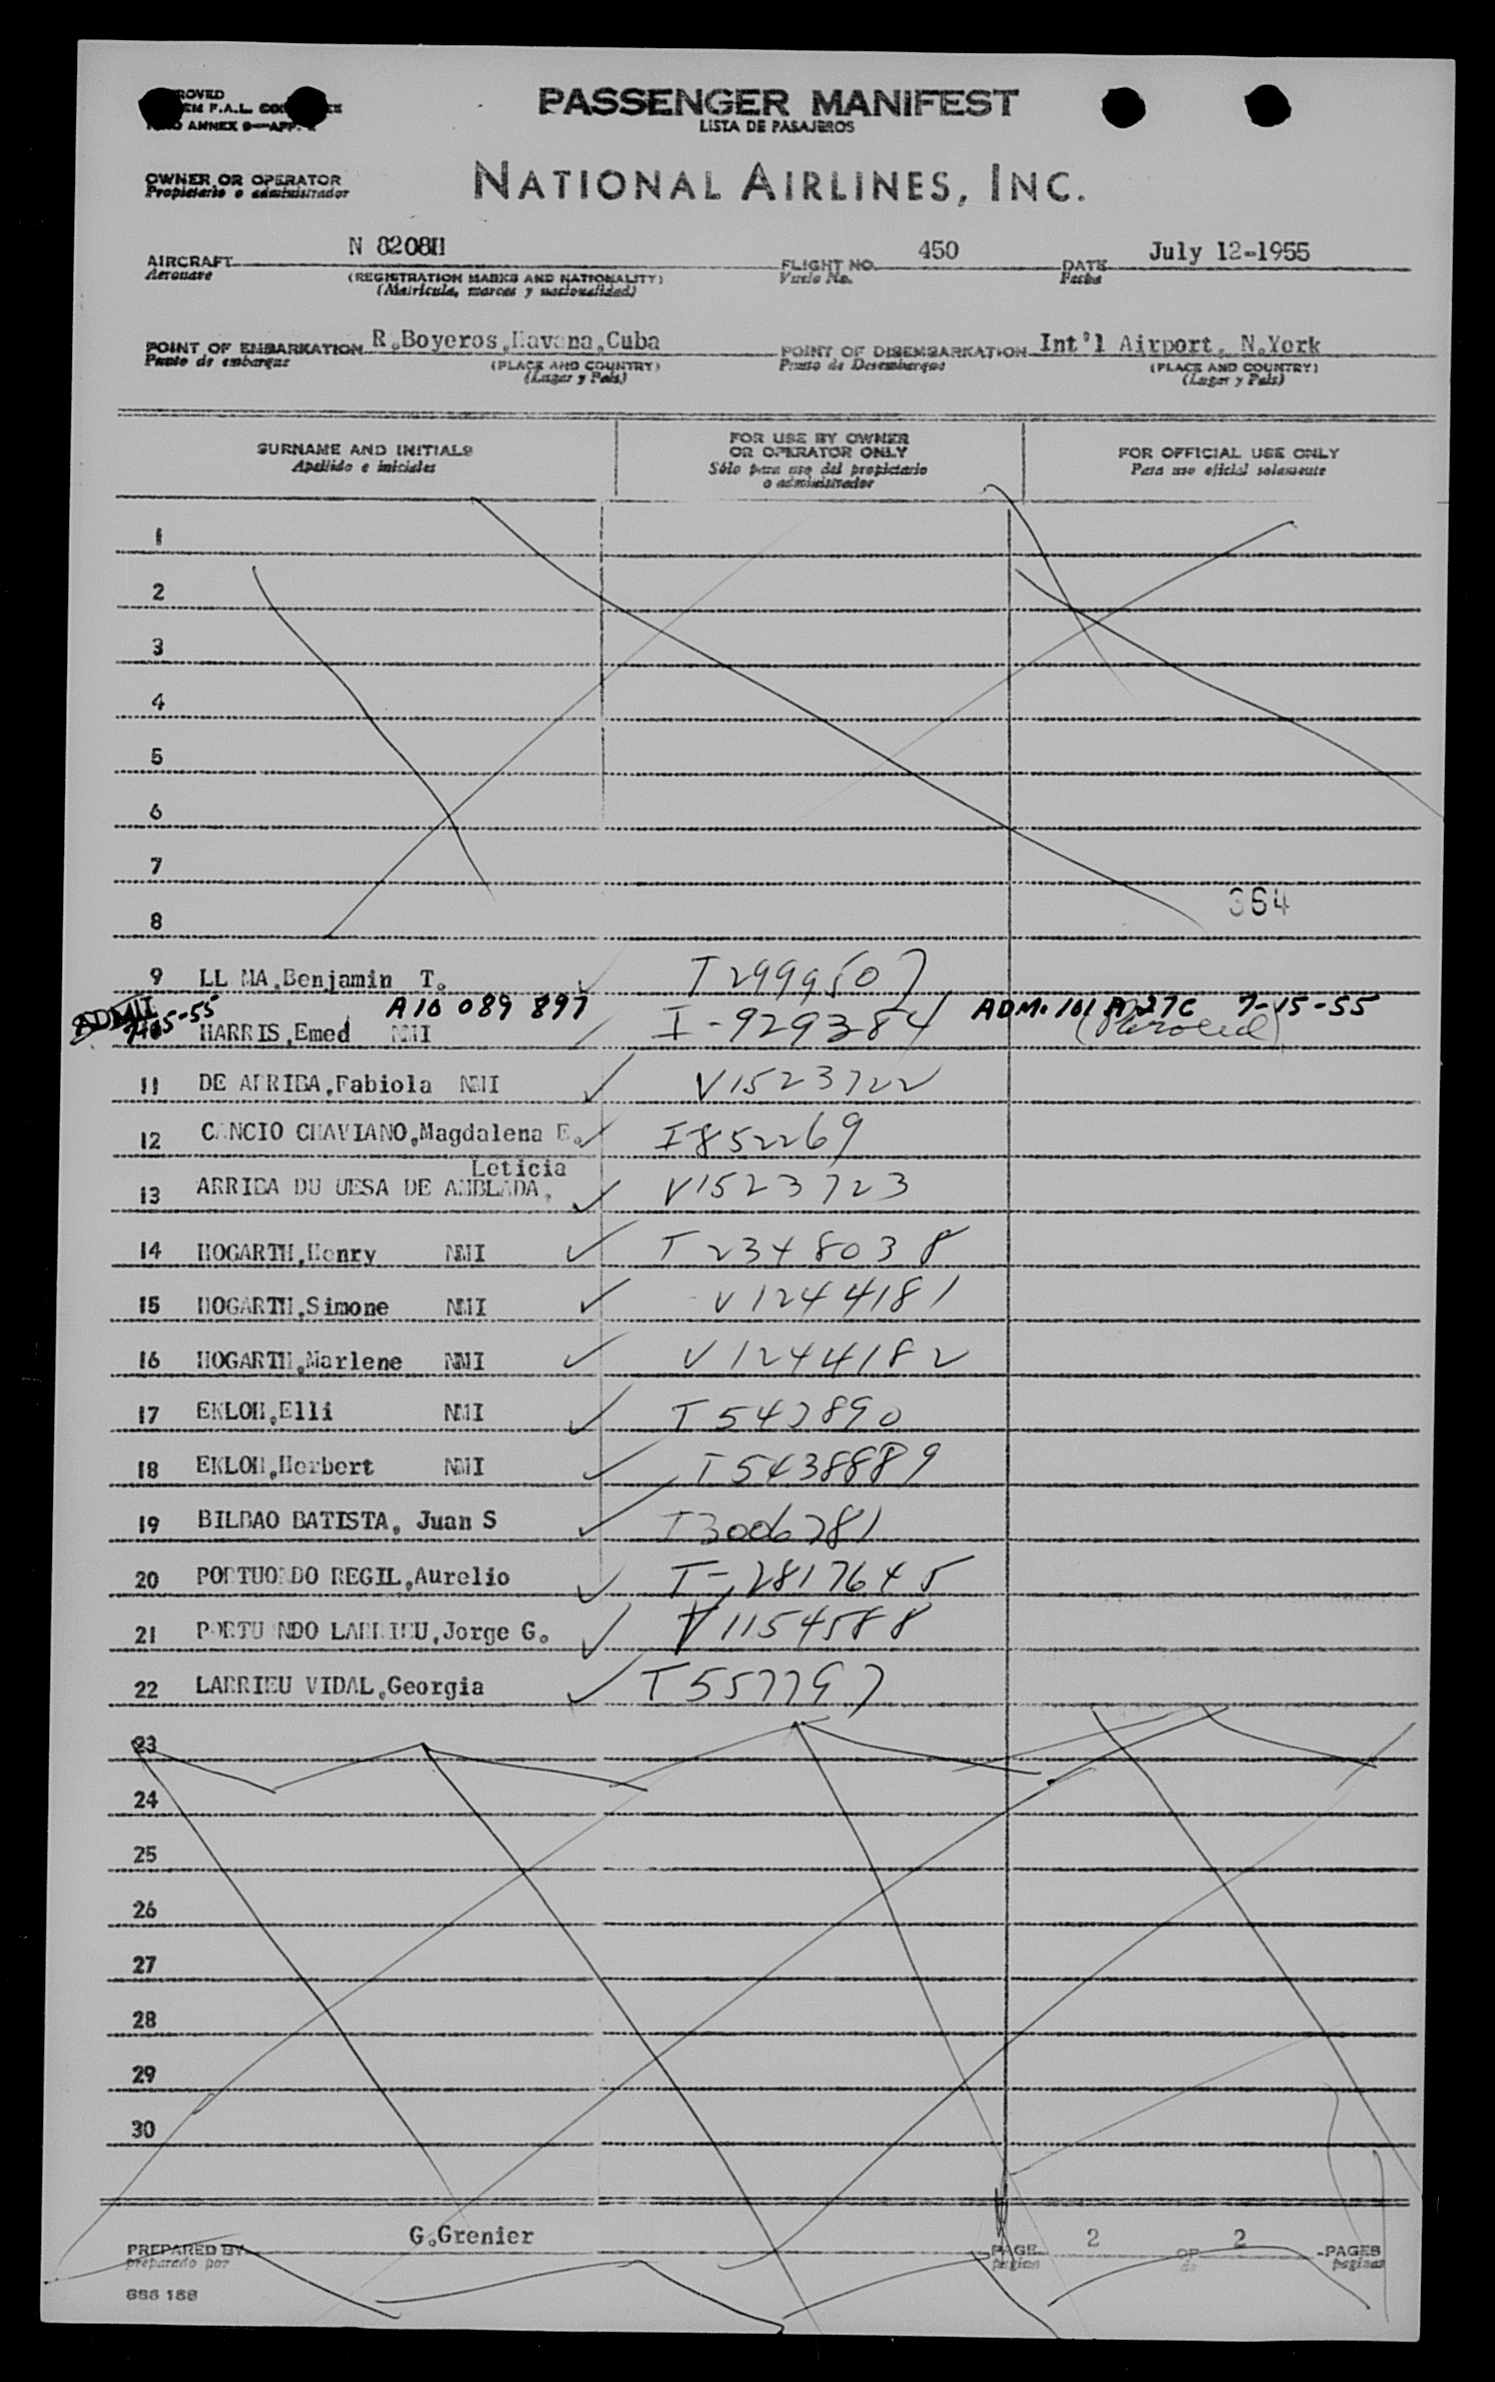 PASSENGER MANIFEST
LISTA DE PASAJEROS
ANNEX 9—APP.
OWNER OR OPERATOR
Propietario o administrador
NATIONAL AIRLINES, INC.
AIRCRAFT N 8208H FLIGHT NO. 450 DATE July 12-1955
Aeronave (REGISTRATION MARKS AND NATIONALITY) Vuelo No. Fecha
(Matrícula, marcas y nacionalidad)
POINT OF EMBARKATION R.Boyeros,Havana,Cuba POINT OF DISEMBARKATION Int'l Airport, N.York
Punto de embarque (PLACE AND COUNTRY) Punto de Desembarque (PLACE AND COUNTRY)
(Lugar y País) (Lugar y País)
SURNAME AND INITIALS FOR USE BY OWNER OR OPERATOR ONLY FOR OFFICIAL USE ONLY
Apellido e iniciales Sólo para uso del propietario o administrador Para uso oficial solamente
1
2
3
4
5
6
7
364
8
9 LL MA,Benjamin T. T2999507
ADMII 7-15-55 A10 089 897 ADM. 101 A 27C 7-15-55
HARRIS,Emed NMI I-929384 (Paroled)
11 DE ARRIBA,Fabiola NMI V1523722
12 CANCIO CHAVIANO,Magdalena E. I852269
Leticia
13 ARRIBA DU UESA DE AMBLADA, V1523723
14 HOGARTH,Henry NMI T2348038
15 HOGARTH,Simone NMI V1244181
16 HOGARTH,Marlene NMI V1244182
17 EKLOH,Elli NMI T543890
18 EKLOH,Herbert NMI T5438889
19 BILBAO BATISTA, Juan S T3006781
20 PORTUONDO REGIL,Aurelio T-2817645
21 PORTUONDO LARRIEU,Jorge G. V1154588
22 LARRIEU VIDAL,Georgia T557797
23
24
25
26
27
28
29
30
PREPARED BY G.Grenier PAGE 2 OF 2 PAGES
preparado por pagina de paginas
886 188